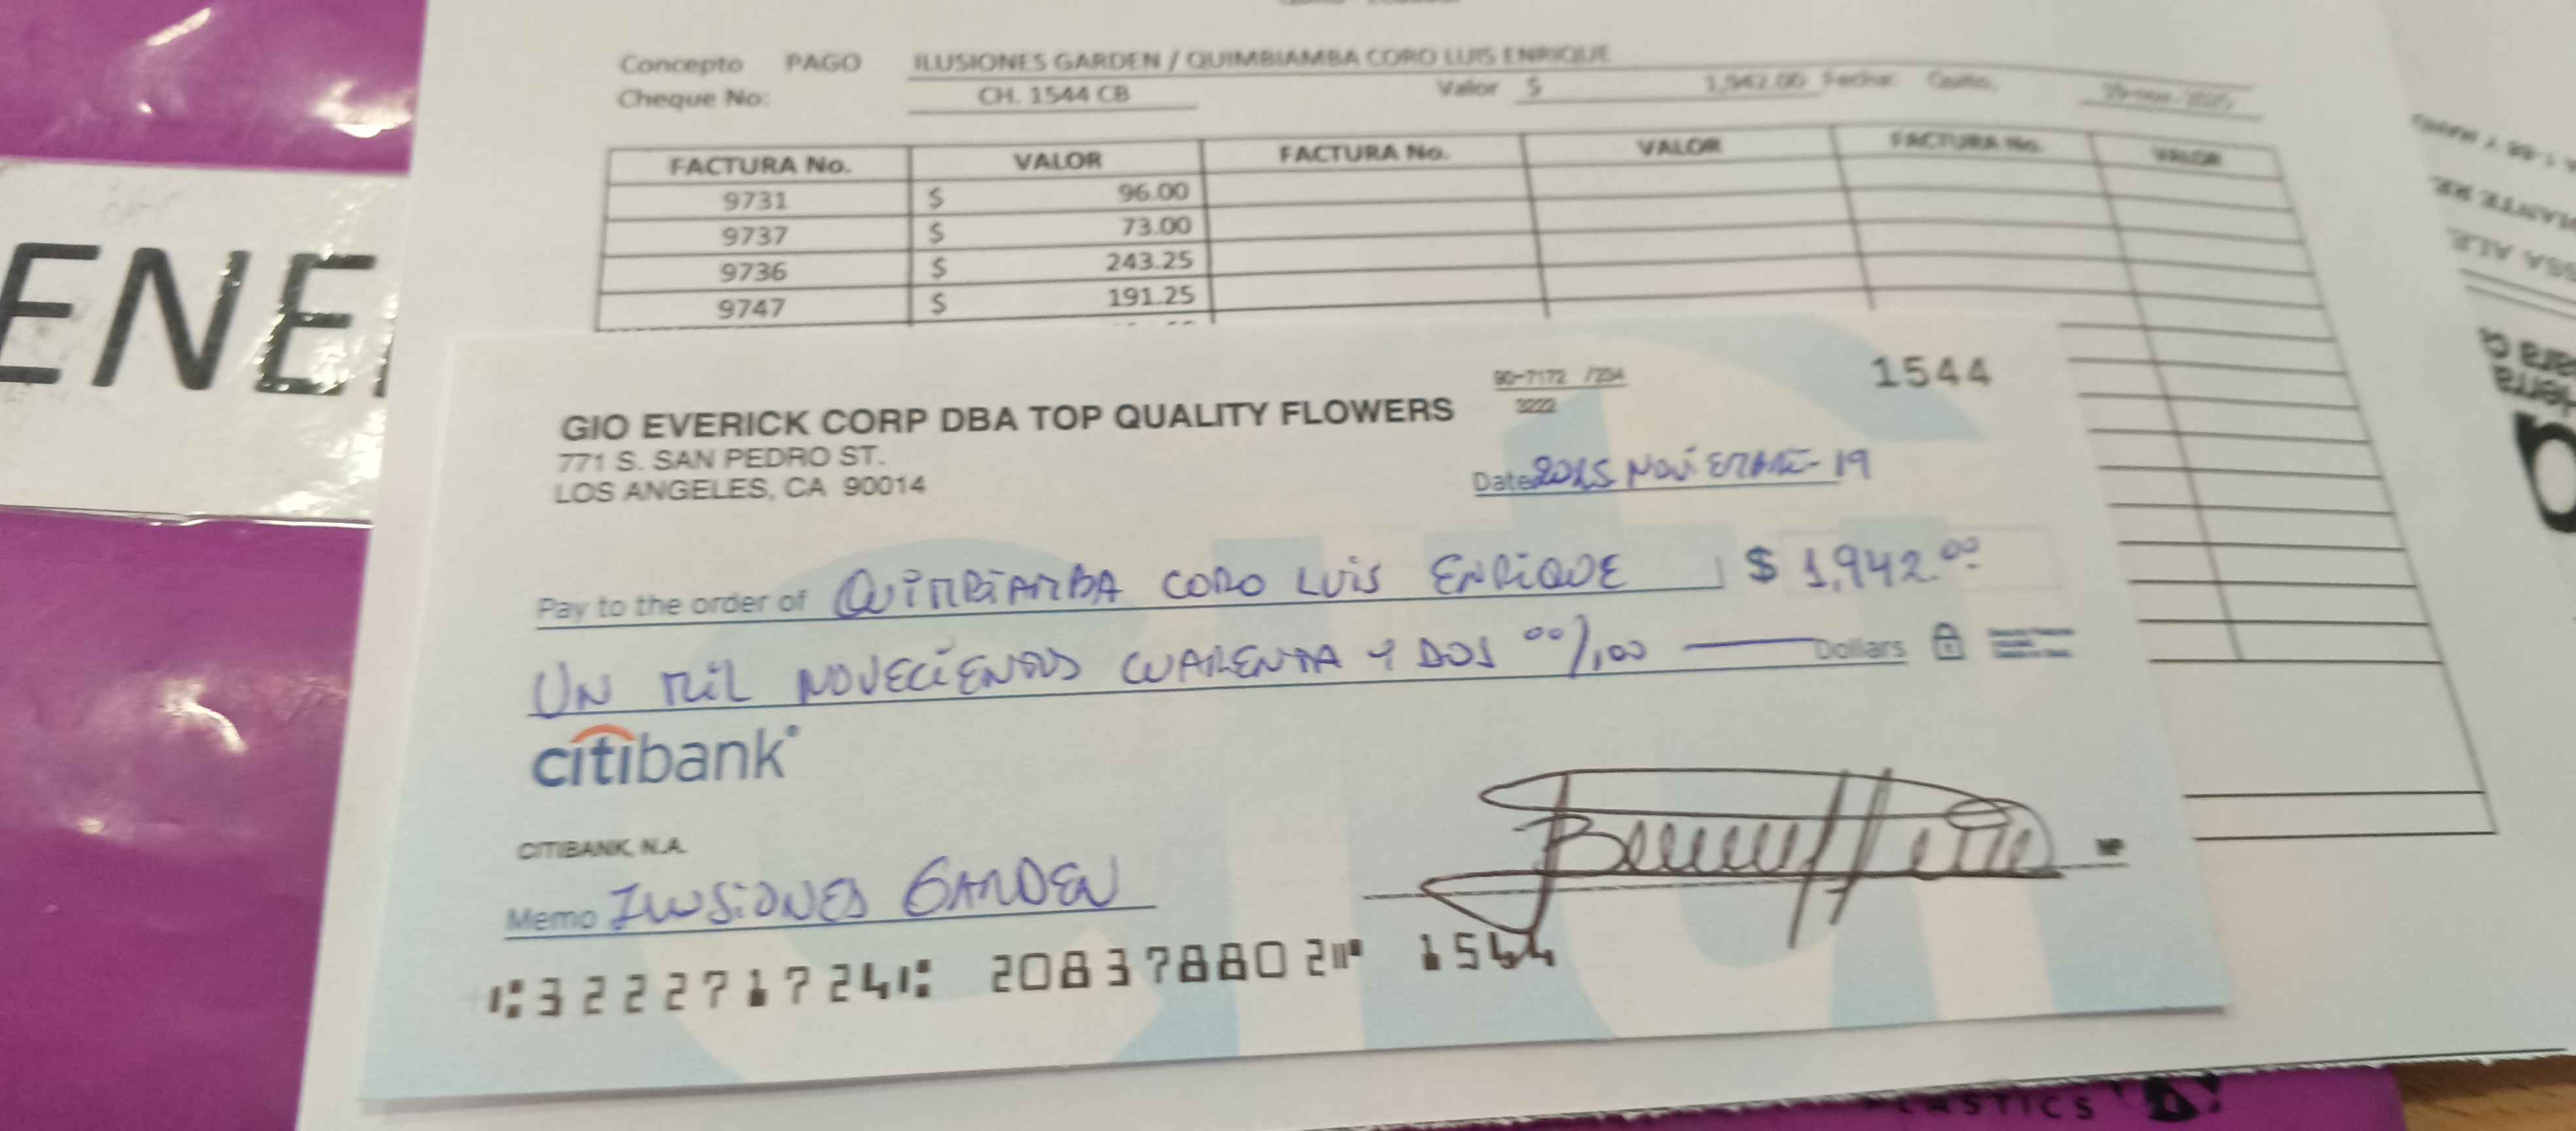 Concepto PAGO ILUSIONES GARDEN / QUIMBIAMBA CORO LUIS ENRIQUE
Cheque No: CH. 1544 CB Valor $ 1,942.00 Fecha: Quito,
FACTURA No. VALOR FACTURA No. VALOR FACTURA No. VALOR
9731 $ 96.00
9737 $ 73.00
9736 $ 243.25
9747 $ 191.25
ENE
GIO EVERICK CORP DBA TOP QUALITY FLOWERS
771 S. SAN PEDRO ST.
LOS ANGELES, CA 90014
90-7172 /234
3222
1544
Date 2025 NOVIEMBRE-19
Pay to the order of QUIMBIAMBA CORO LUIS ENRIQUE $ 1,942.00
UN MIL NOVECIENTOS CUARENTA Y DOS 00/100 Dollars
citibank
CITIBANK, N.A.
Memo ILUSIONES GARDEN
MP
⑆322271724⑆ 208378802⑈ 1544